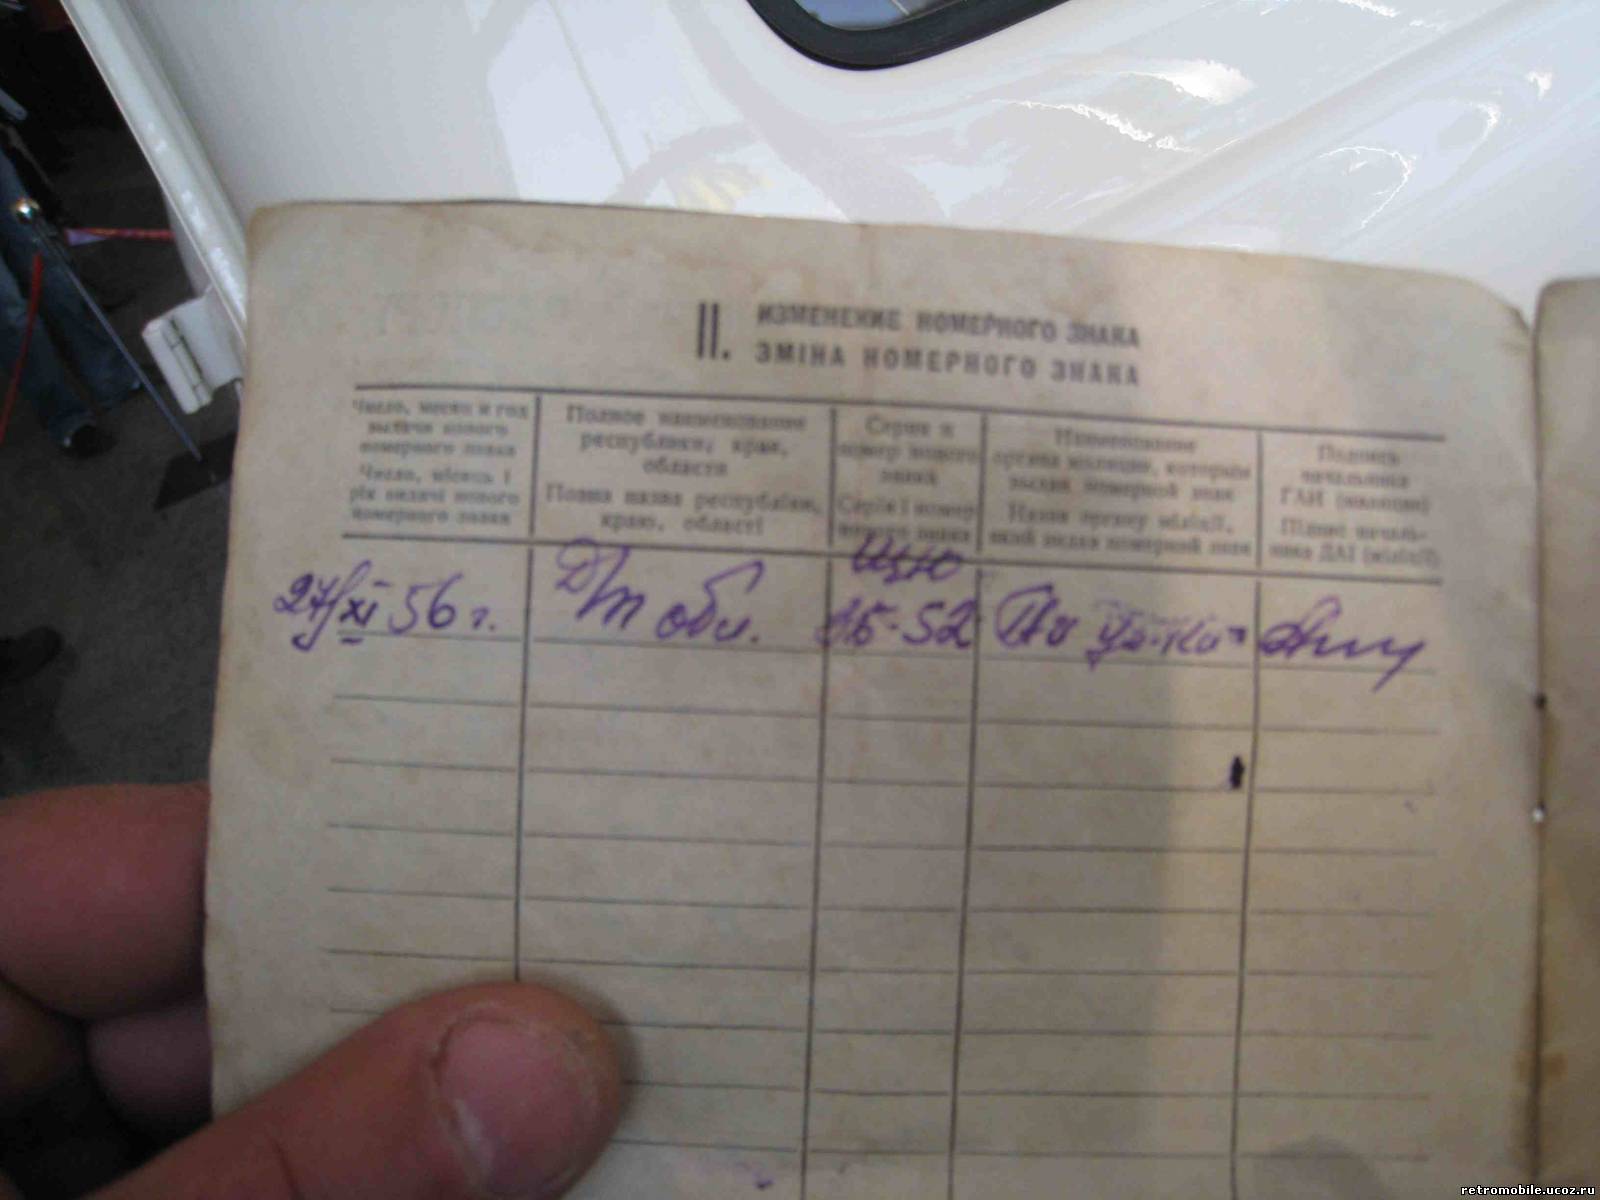 II. ИЗМЕНЕНИЕ НОМЕРНОГО ЗНАКА
ЗМІНА НОМЕРНОГО ЗНАКА
Число, месяц и год
выдачи нового
номерного знака
Число, місяць і
рік видачі нового
номерного знака
Полное наименование
республики, края,
области
Повна назва республіки,
краю, області
Серия и
номер нового
знака
Серія і номер
нового знака
Наименование
органа милиции, которым
выдан номерной знак
Назва органу міліції,
який видав номерний знак
Подпись
начальника
ГАИ (милиции)
Підпис началь-
ника ДАІ (міліції)
27/XI 56 г.
обл.
-52
retromobile.ucoz.ru